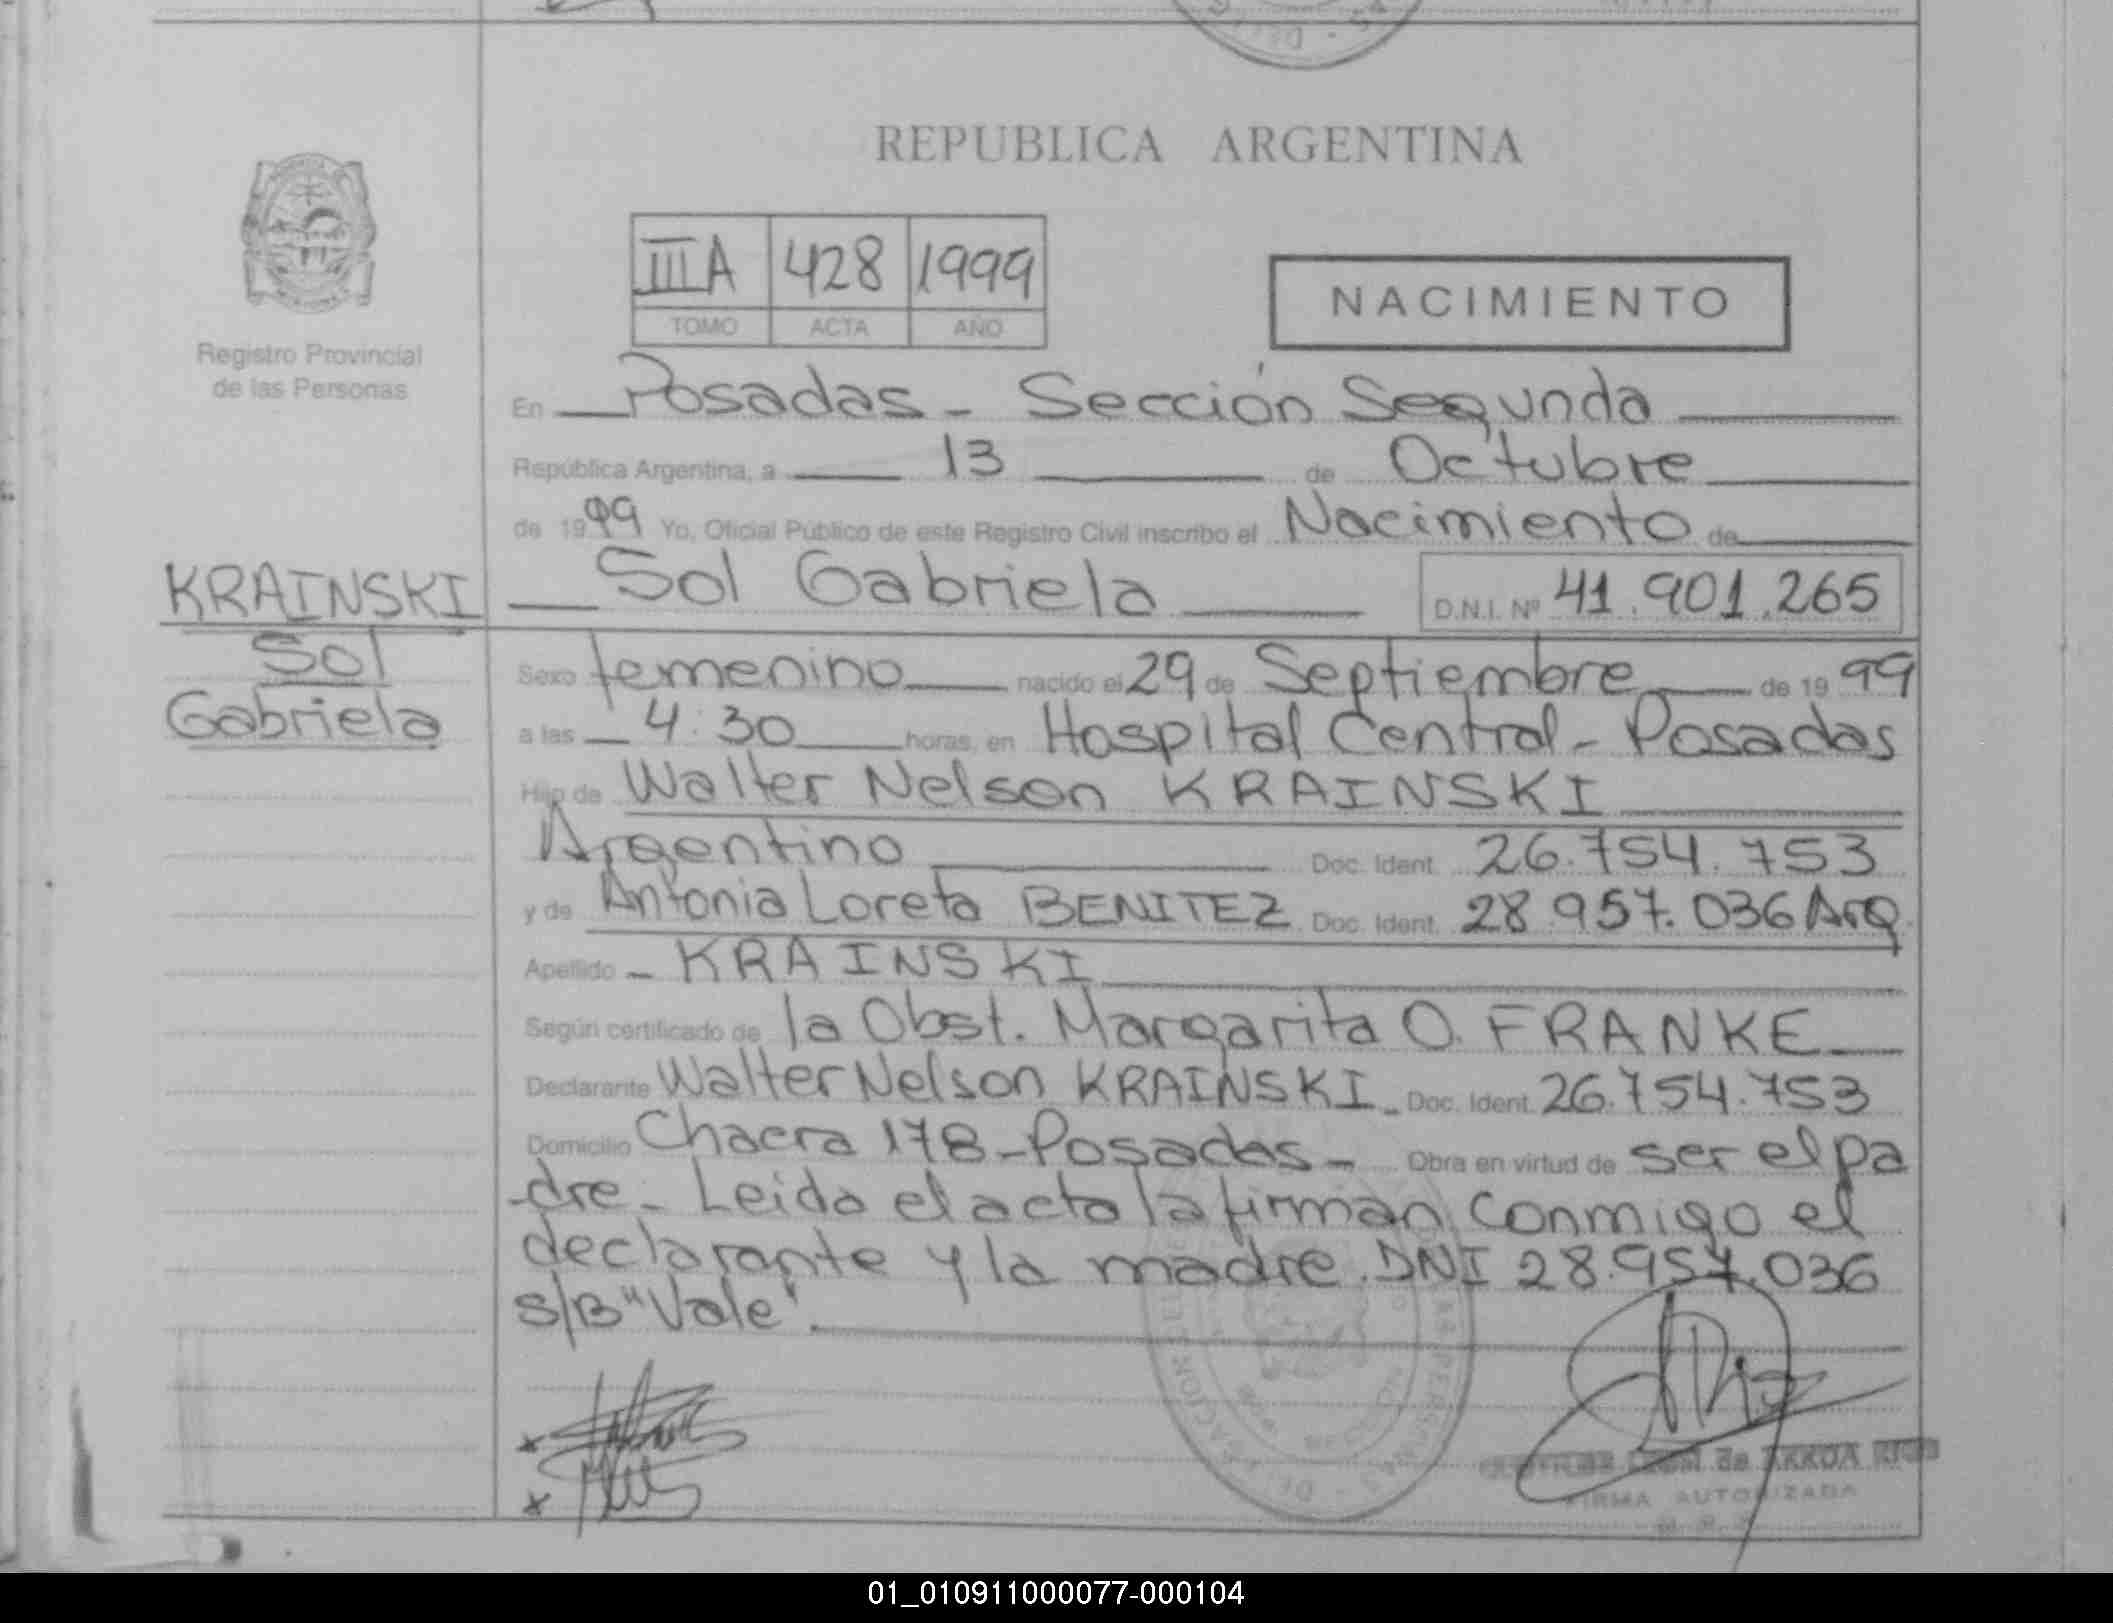 REPUBLICA ARGENTINA
IIIA 428 1999
TOMO ACTA AÑO
NACIMIENTO
Registro Provincial
de las Personas
En Posadas - Sección Segunda
República Argentina, a 13 de Octubre
de 1999 Yo, Oficial Público de este Registro Civil inscribo el Nacimiento de
KRAINSKI
Sol
Gabriela
Sol Gabriela D.N.I. Nº 41.901.265
Sexo femenino nacido el 29 de Septiembre de 1999
a las 4:30 horas, en Hospital Central - Posadas
Hijo de Walter Nelson KRAINSKI
Argentino Doc. Ident. 26.754.753
y de Antonia Loreta BENITEZ Doc. Ident. 28.957.036 Arg.
Apellido - KRAINSKI
Según certificado de la Obst. Margarita O. FRANKE
Declarante Walter Nelson KRAINSKI - Doc. Ident. 26.754.753
Domicilio Chacra 178 - Posadas - Obra en virtud de ser el pa
-dre - Leida el acta la firman conmigo el
declarante y la madre. DNI 28.957.036
s/B "Vale".
de ARRUA
FIRMA AUTORIZADA
01_010911000077-000104